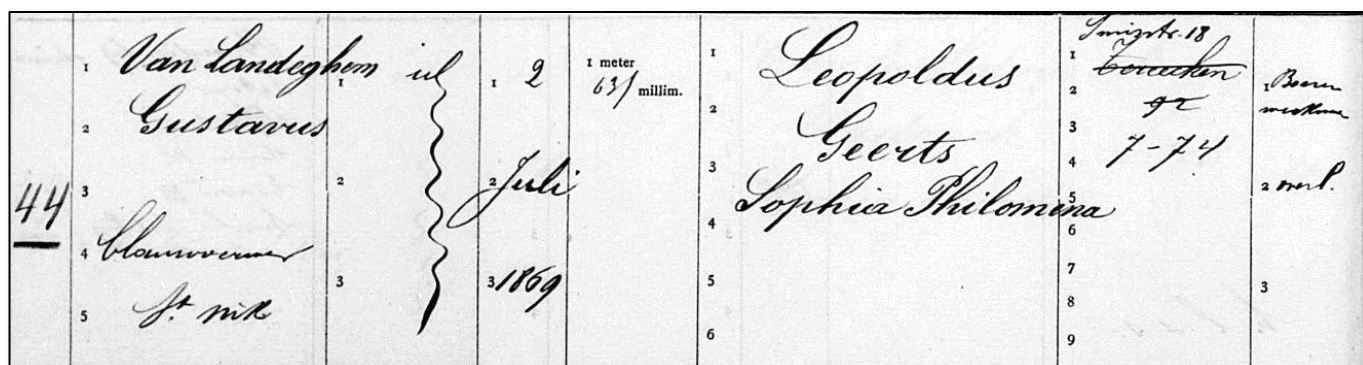 44
1 Van Landeghem
2 Gustavus
3
4 blauwverwer
5 St. nik
1 id
2
3
1 2
2 Juli
3 1869
1 meter
635 millim.
1 Leopoldus
2 Geerts
3 Sophia Philomena
4
5
6
18
1
2 92
3
4 7-74
5
6
7
8
9
1 Boeren
2 overl.
3